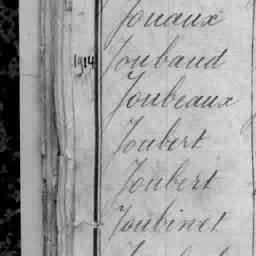 Jouaux
1914 Joubaud
Joubeaux
Joubert
Joubert
Joubinet